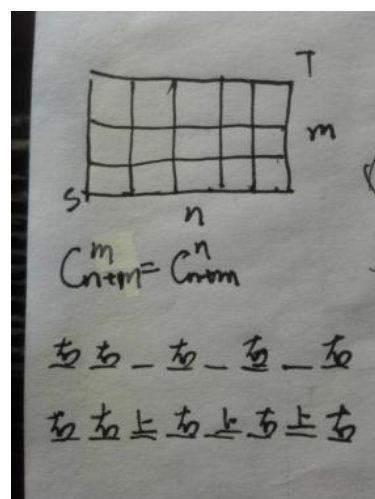 T
m
S
n
C_{n+m}^{m} = C_{n+m}^{n}
右 右 _ 右 _ 右 _ 右
右 右 上 右 上 右 上 右